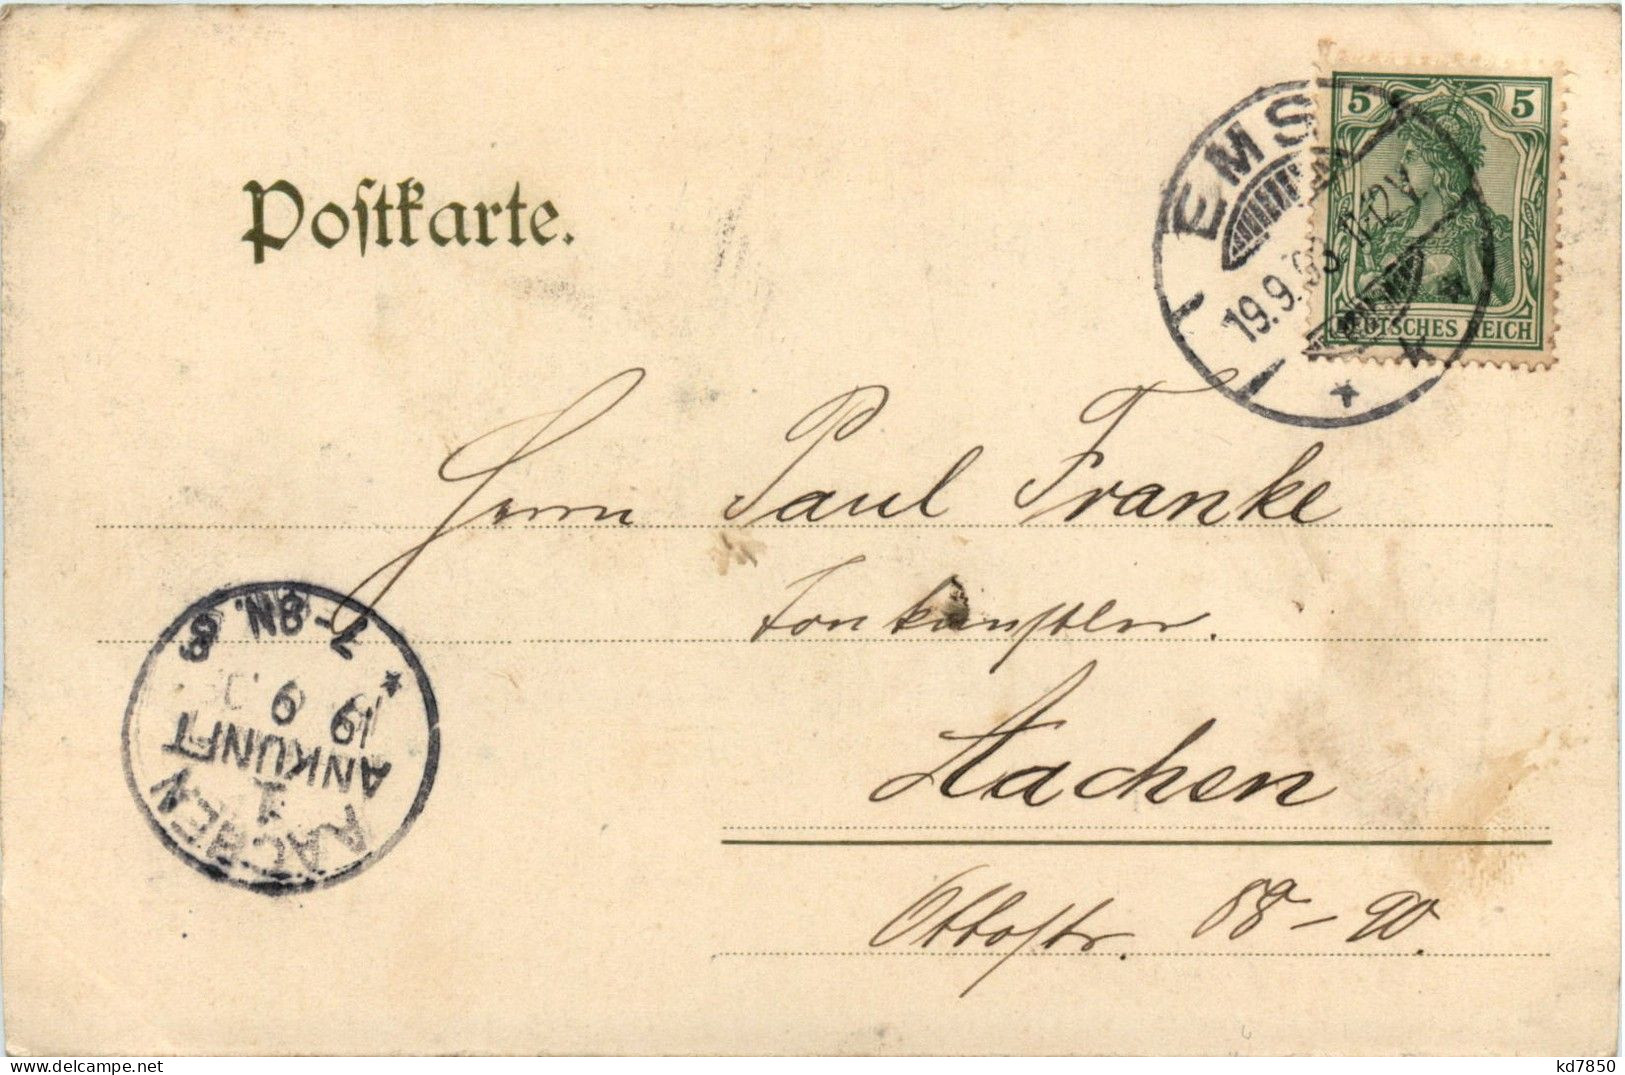 Postkarte.
5 5
DEUTSCHES REICH
EMS
19.9.03 11-12V.
Herrn Paul Franke
Tonkünstler.
Aachen
Ottostr. 88-90.
AACHEN
1
ANKUNFT
19 9
7-8N.
kd7850